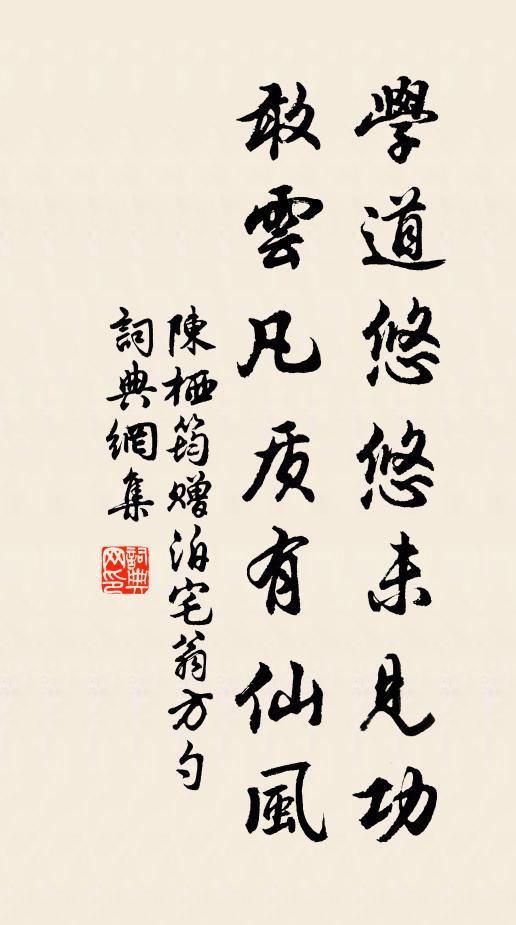 學道悠悠未見功
敢雲凡质有仙風
陳栖筠赠泊宅翁方勺
詞典網集
詞典
网印